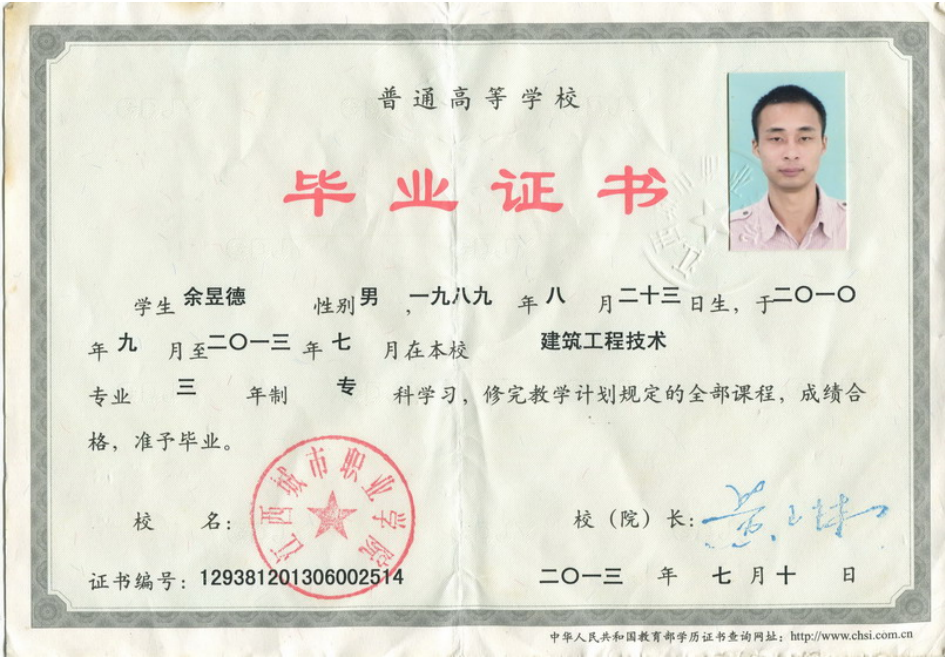 普通高等学校
毕业证书
学生 余昱德 性别 男 , 一九八九 年 八 月 二十三 日生，于 二〇一〇
年 九 月至 二〇一三 年 七 月在本校 建筑工程技术
专业 三 年制 专 科学习，修完教学计划规定的全部课程，成绩合
格，准予毕业。
江西城市职业学院
校 名： 校（院）长：
证书编号：129381201306002514 二〇一三 年 七 月 十 日
中华人民共和国教育部学历证书查询网址：http://www.chsi.com.cn